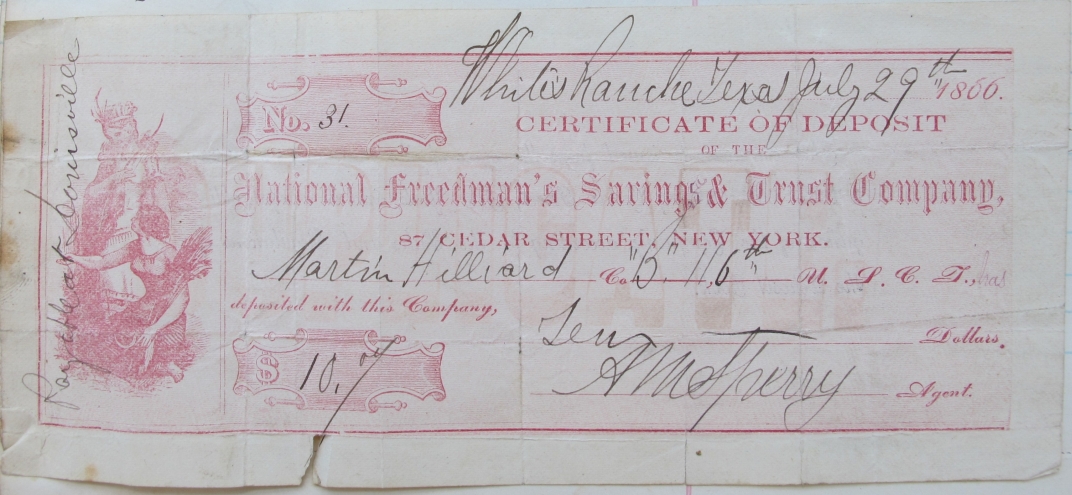 White's Ranche Texas July 29th 1866.
No. 31.
CERTIFICATE OF DEPOSIT
OF THE
National Freedman's Savings & Trust Company,
87 CEDAR STREET, NEW YORK.
Martin Hilliard Co. "B" 116th U. S. C. T., has
deposited with this Company,
Ten Dollars.
$ 10.
A M Sperry Agent.
Pay at Louisville